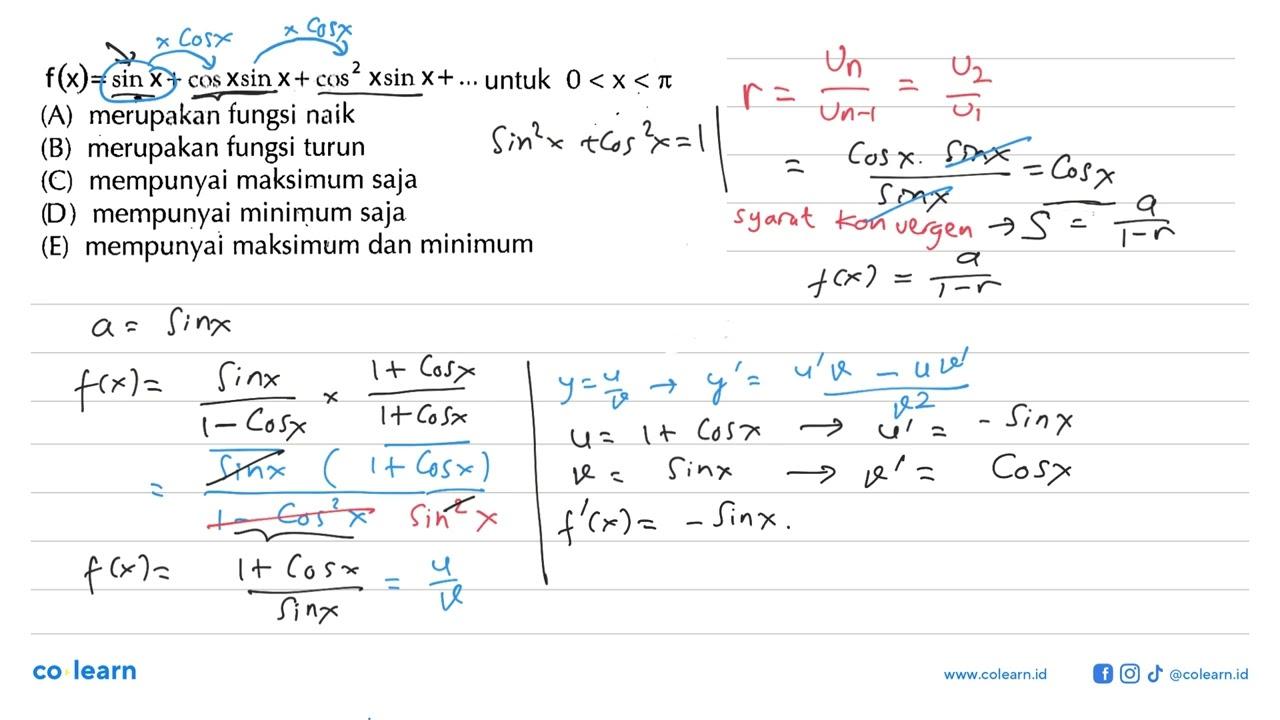 x Cosx x Cosx
f(x)= sin x + cos x sin x + cos² x sin x + ... untuk 0 < x < π
(A) merupakan fungsi naik
(B) merupakan fungsi turun
(C) mempunyai maksimum saja
(D) mempunyai minimum saja
(E) mempunyai maksimum dan minimum
Sin²x + Cos²x = 1
r = Un / Un-1 = U2 / U1
= Cosx . Sinx / Sinx = Cosx
syarat konvergen → S = a / 1-r
f(x) = a / 1-r
a = Sinx
f(x) = Sinx / 1 - Cosx x 1 + Cosx / 1 + Cosx
= Sinx ( 1 + Cosx ) / 1 - Cos²x Sin²x
f(x) = 1 + Cosx / Sinx = u / v
y = u / v → y' = u'v - uv' / v2
u = 1 + Cosx → u' = - Sinx
v = Sinx → v' = Cosx
f'(x) = - Sinx .
co learn
www.colearn.id
@colearn.id